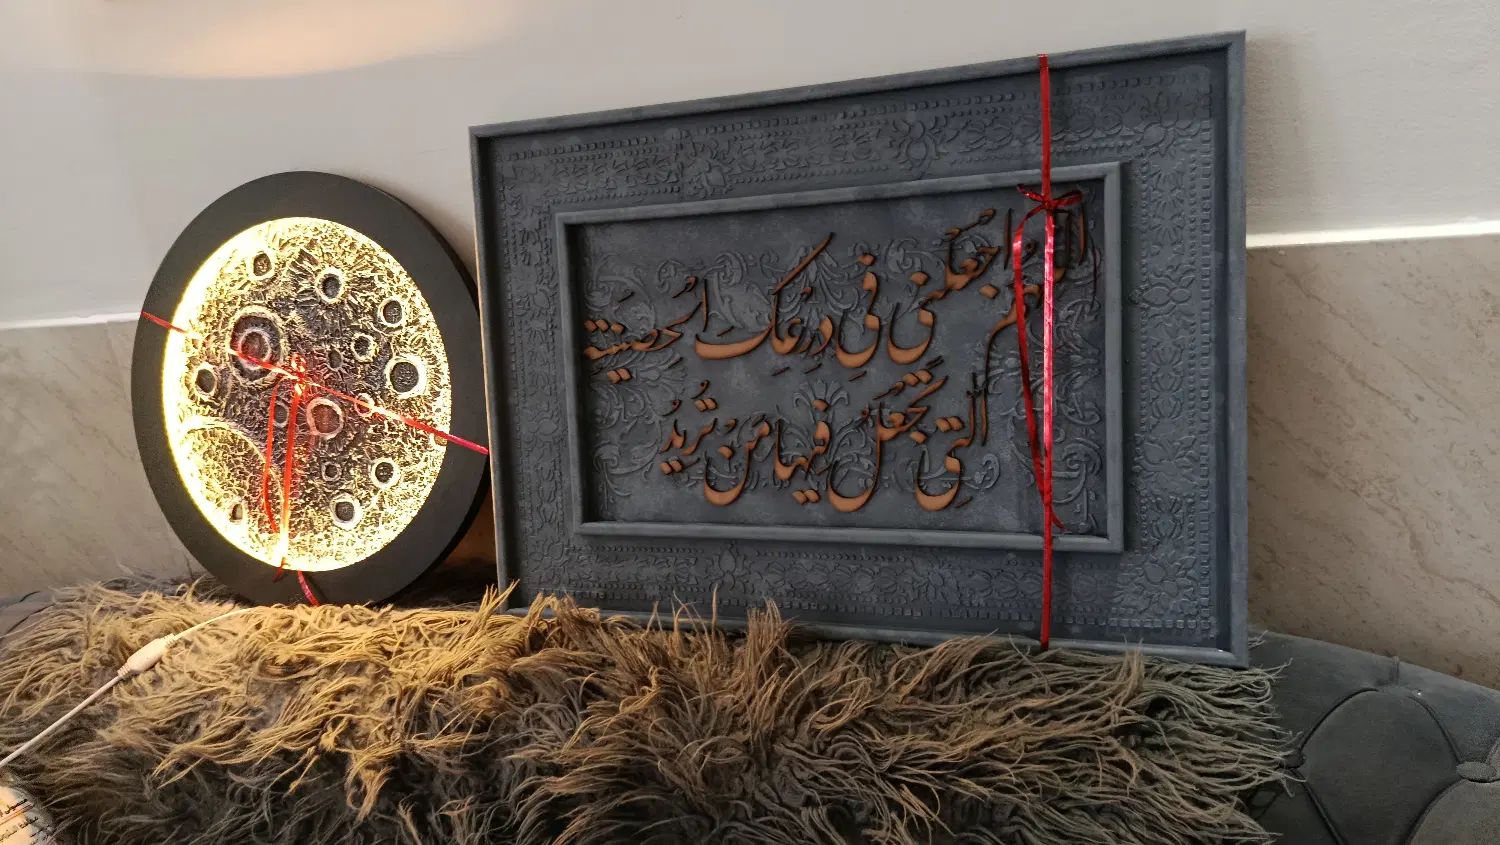 اللّهُمَّ اجْعَلْنِي فِي دِرْعِكَ الْحَصِينَةِ
الَّتِي تَجْعَلُ فِيهَا مَنْ تُرِيدُ